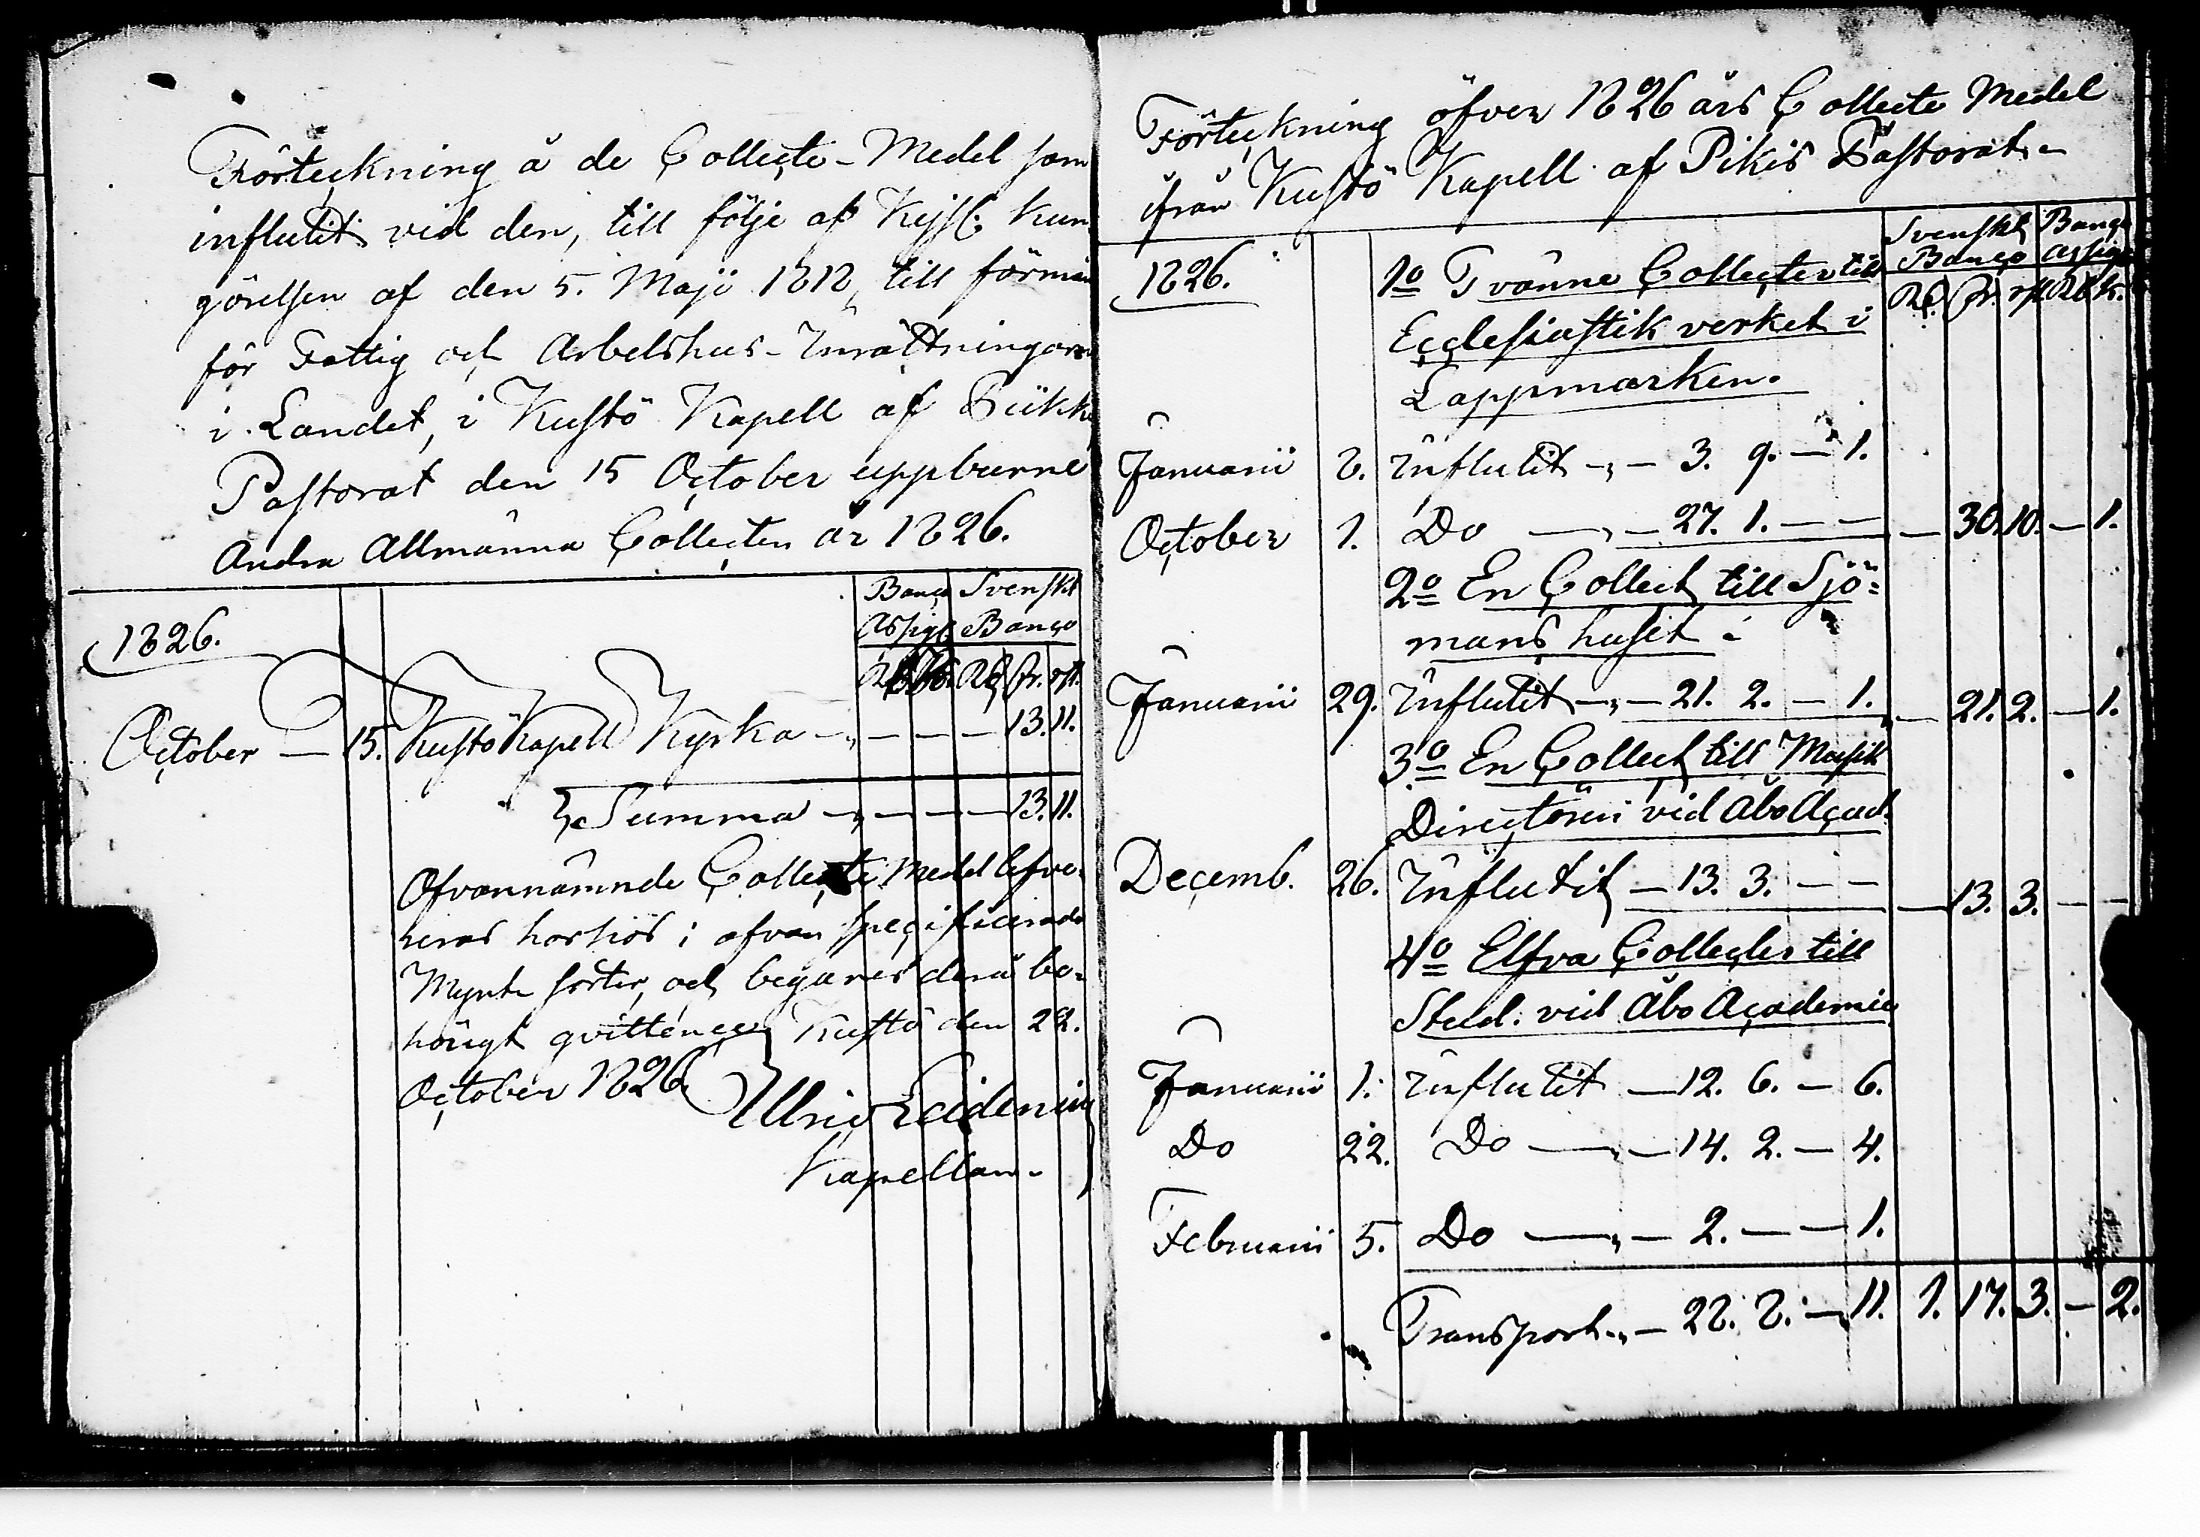 Förteckning å de Collecte-Medel som
influtit vid den, till följe af Kejsl. Kun
görelsen af den 5. Maji 1818, till förmån
för Fattig och Arbetshus-Inrättningarne
i Landet, i Kustö Kapell af Piikkis
Pastorat den 15 October uppburne
Andra Allmänna Collecten år 1826.
Banco Svenskt
Assign. Banco
1826.
Rb. K. Rd. sk. rst.
October — 15. Kustö Kapell Kyrka — — — — 13. 11.
Summa — — — — 13. 11.
Ofvannämnde Collecte Medel lefve-
reras härhos i ofvan specificerade
Mynte sorter, och begäres derå be-
hörigt qvittence, Kustö den 22.
October 1826.
Ulric
Kapellan.
Förteckning öfver 1826 års Collecte Medel
ifrån Kustö Kapell af Pikis Pastorat.
Svenskt Banco
Banco Assign.
1826. 1o Tvänne Collecter till
Rd. sk. rst. Rb. K.
Ecclesiastik verket i
Lappmarken.
Januarii 8. Influtit — 3. 9. — 1.
October 1. Do — 27. 1. — — — 30. 10. — 1.
2o En Collect till Sjö=
mans huset
Januarii 29. Influtit — 21. 2. — 1. — 21. 2. — 1.
3o En Collect till Musik
Directoren vid Åbo Acad.
Decemb. 26. Influtit — 13. 3. — — — 13. 3. — —
4o Elfva Collecter till
Stud. vid Åbo Academie
Januarii 1. Influtit — 12. 6. — 6.
Do 22. Do — 14. 2. — 4.
Februarii 5. Do — 2. — — 1.
Transport — 28. 8. — 11. 1. 17. 3. — 2.